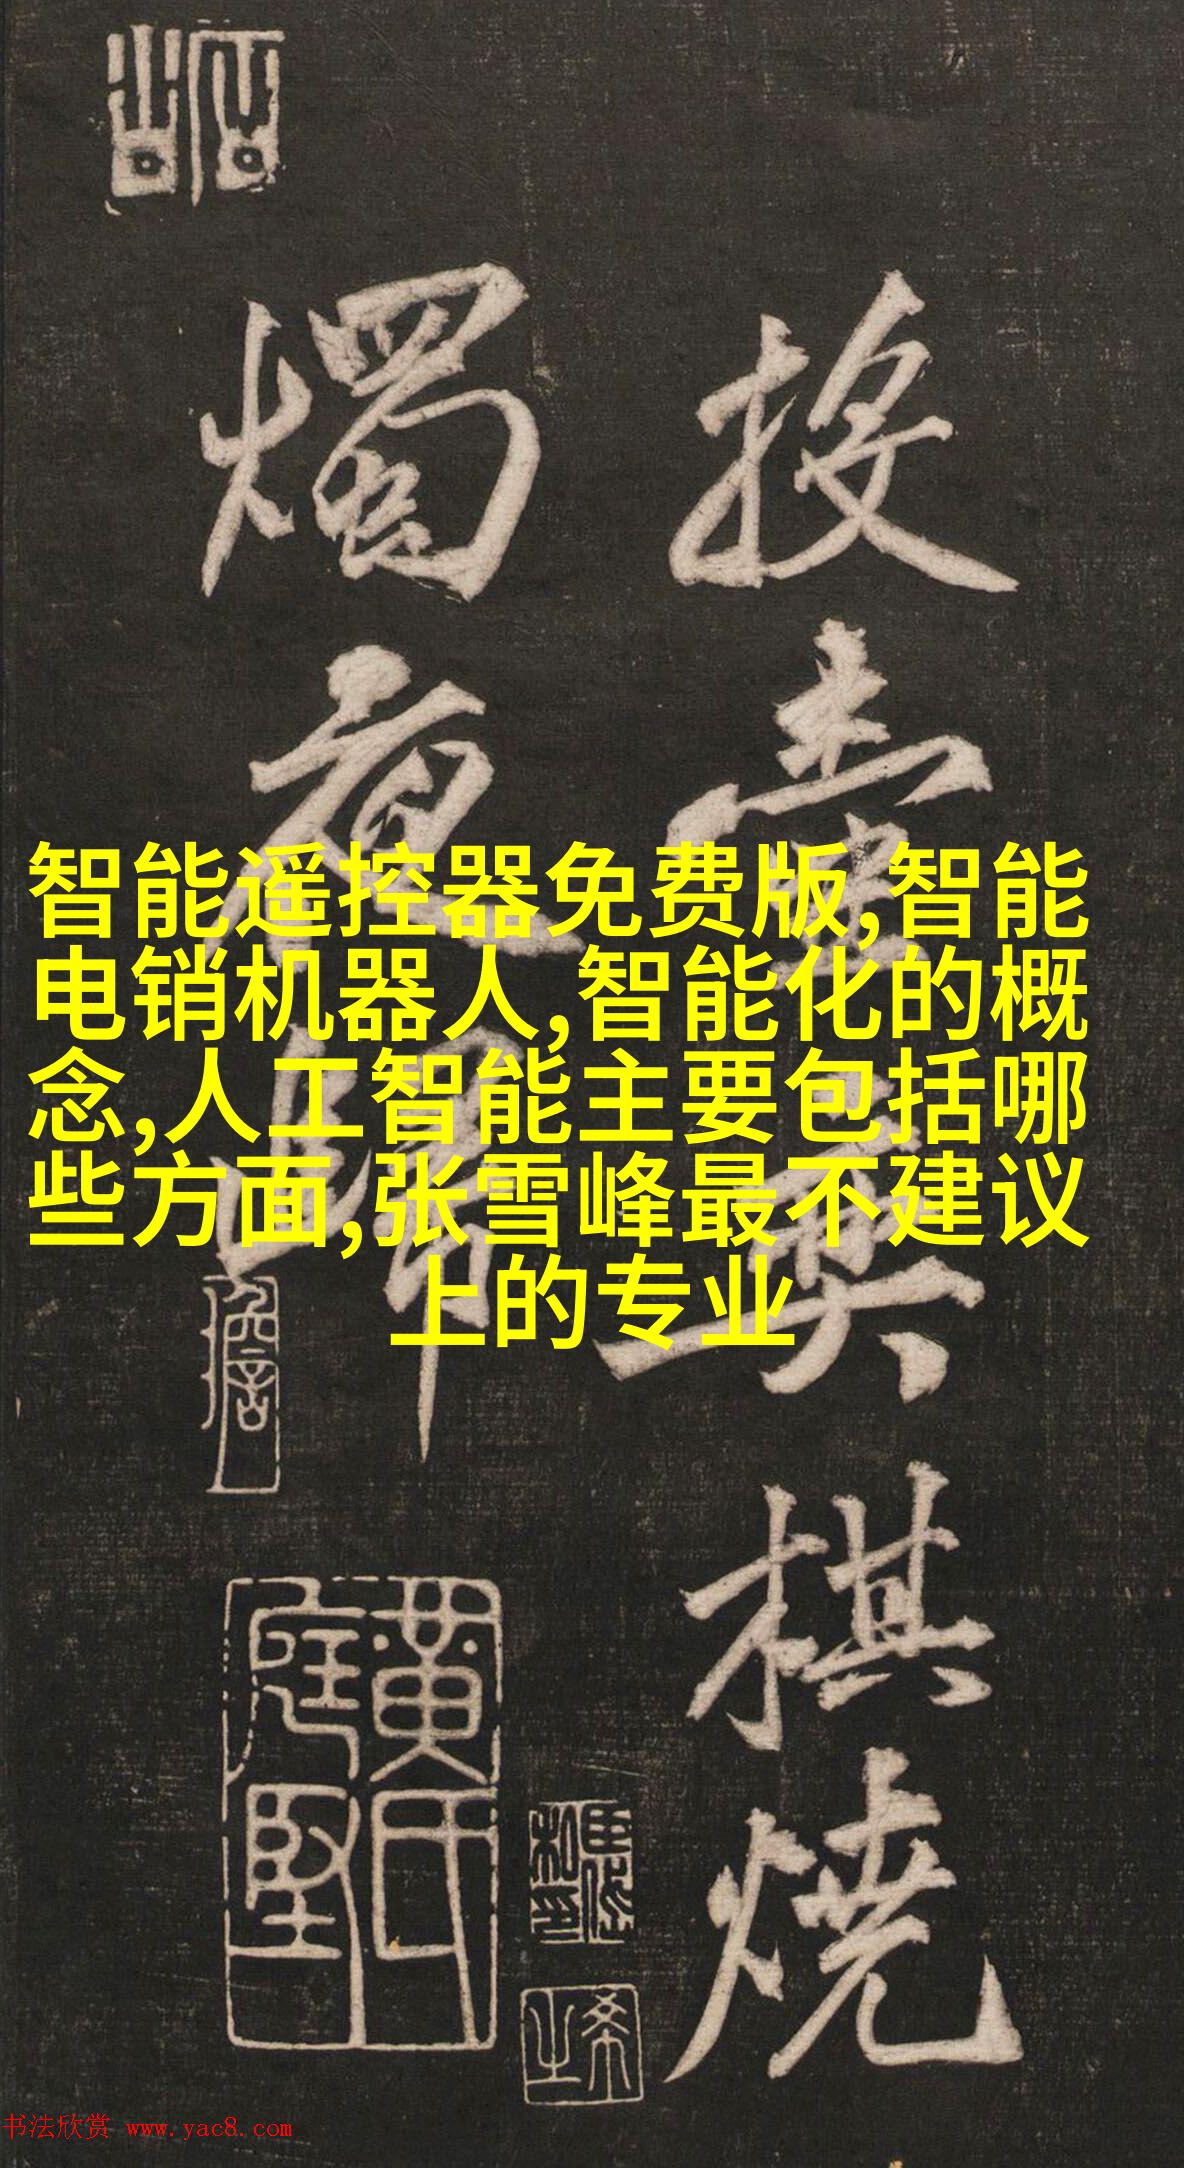 投壺奕棋燒
燭夜歸
智能遥控器免费版,智能
电销机器人,智能化的概
念,人工智能主要包括哪
些方面,张雪峰最不建议
上的专业
黄氏
庭堅
书法欣赏 www.yac8.com